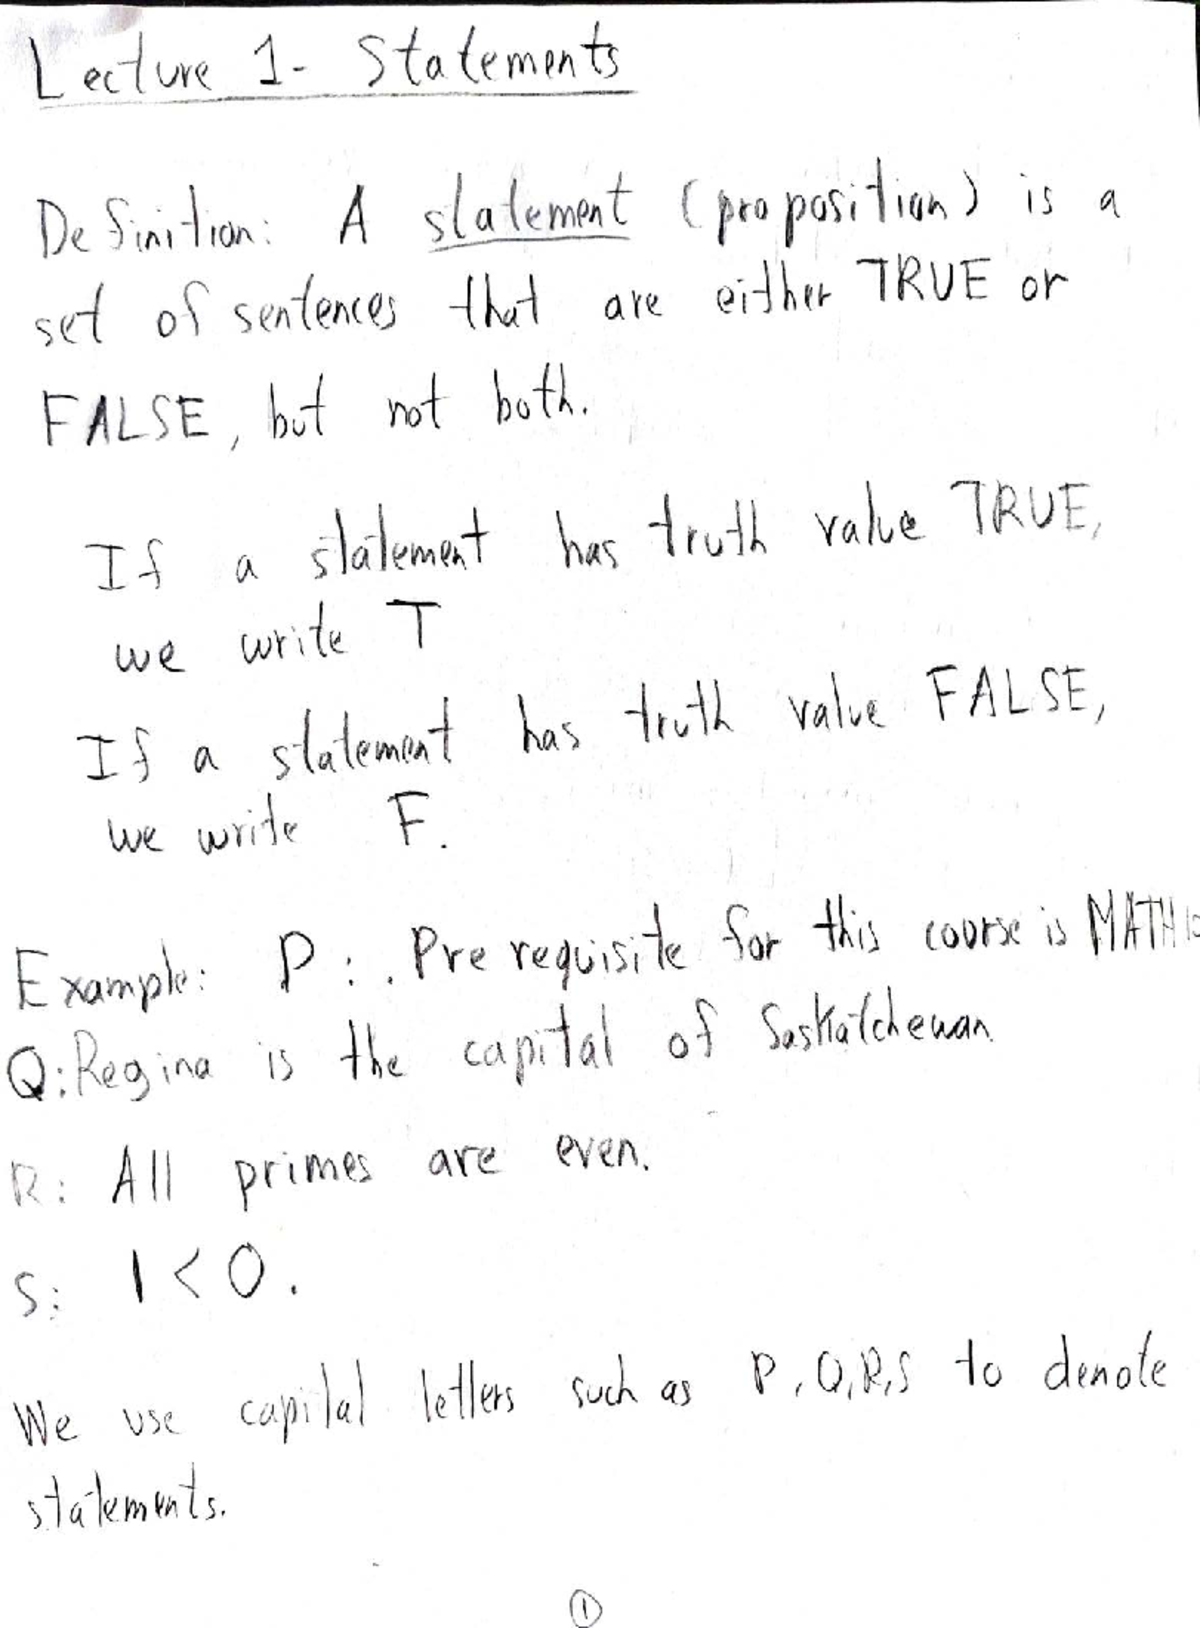 Lecture 1- Statements
Definition: A statement (proposition) is a
set of sentences that are either TRUE or
FALSE, but not both.
If a statement has truth value TRUE,
we write T
If a statement has truth value FALSE,
we write F.
Example: P: . Pre requisite for this course is MATH
Q: Regina is the capital of Saskatchewan.
R: All primes are even.
S: 1 < 0.
We use capital letters such as P, Q, R, S to denote
statements.
1